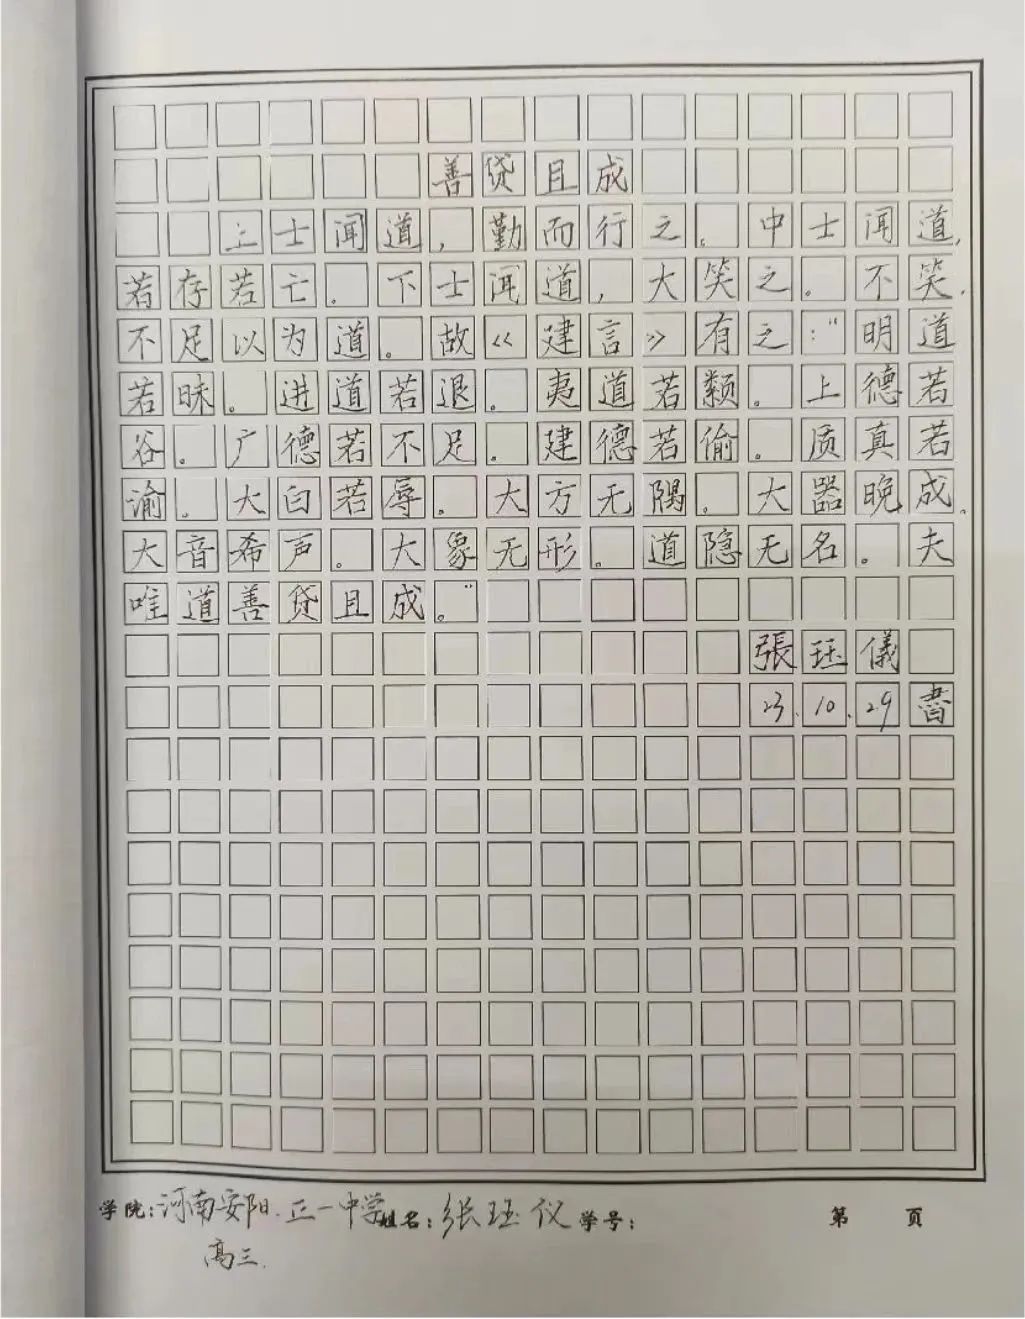 善贷且成
上士闻道，勤而行之。中士闻道，
若存若亡。下士闻道，大笑之。不笑，
不足以为道。故《建言》有之："明道
若昧。进道若退。夷道若颣。上德若
谷。广德若不足。建德若偷。质真若
渝。大白若辱。大方无隅。大器晚成。
大音希声。大象无形。道隐无名。夫
唯道善贷且成。"
張珏儀
23.10.29書
学院：河南安阳.正一中学姓名：张珏仪 学号： 第 页
高三.